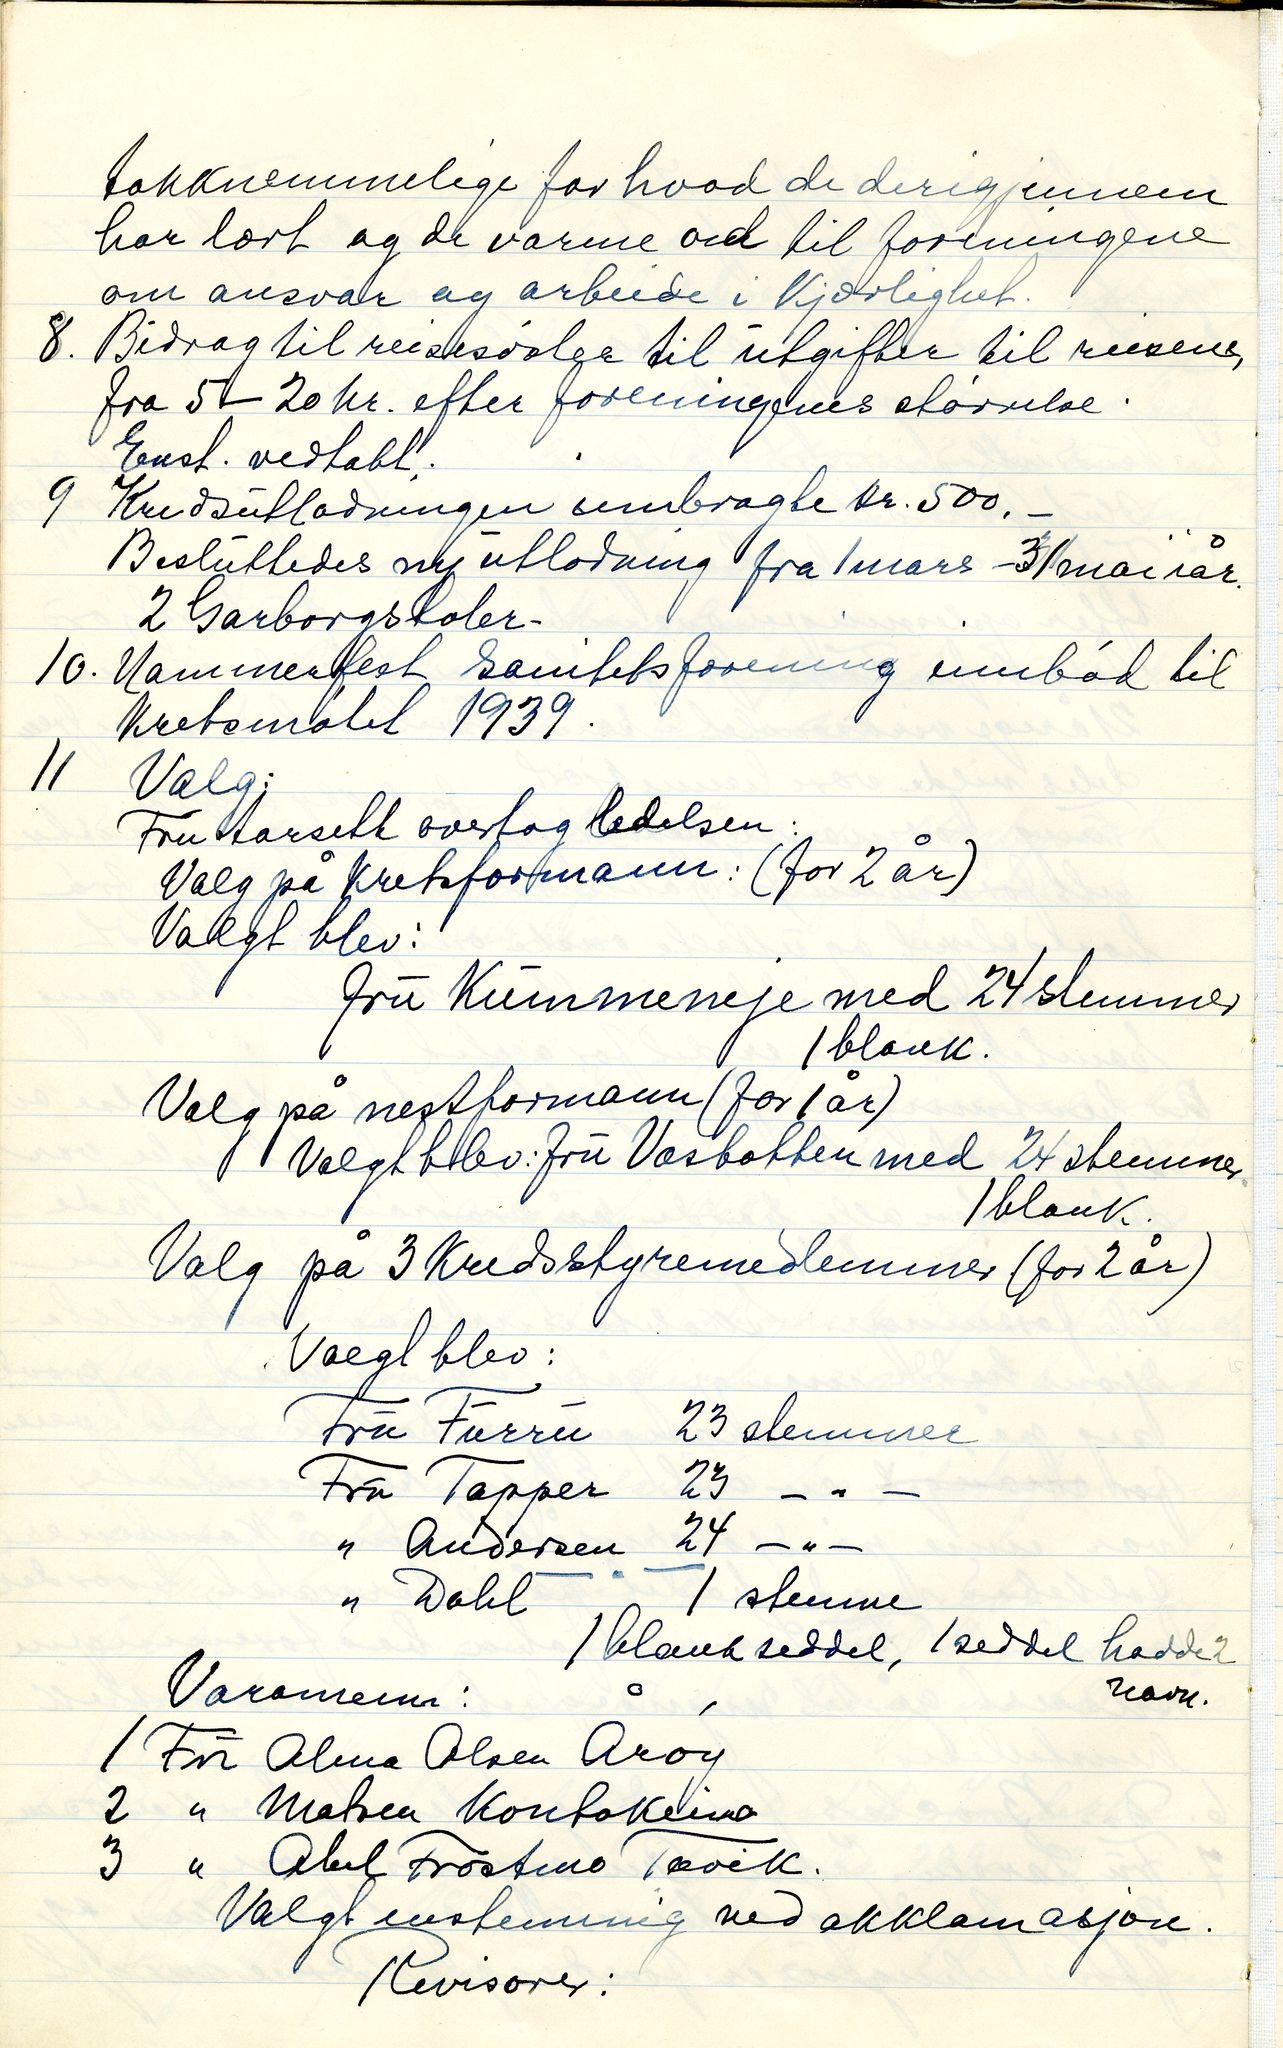 takknemmelige for hvad de derigjennem
har lært og de varme ord til foreningene
om ansvar og arbeide i kjærlighet.
8. Bidrag til reisesöster til utgifter til reisene,
fra 5 – 20 kr. efter foreningenes störrelse.
Enst. vedtatt.
9 Kredsutlodningen innbragte kr. 500.–
Besluttedes ny utlodning fra 1 mars – 31 mai iår.
2 Garborgstoler –
10. Hammerfest Sanitetsforening innböd til
Kretsmötet 1939.
11 Valg:
Fru Aarseth overtog ledelsen:
Valg på Kretsformann: (for 2 år)
Valgt blev:
fru Kummeneje med 24 stemmer
1 blank.
Valg på nestformann (for 1 år)
Valgt blev: fru Vasbotten med 24 stemmer
1 blank.
Valg på 3 Kredsstyremedlemmer (for 2 år)
Valgt blev:
Fru Furru 23 stemmer
Fru Tapper 23 – " –
" Andersen 24 – " –
" Dahl 1 stemme
1 blank seddel, 1 seddel hadde 2
navn.
Varamenn:
1 Fru Alma Olsen Åröy
2 " Matsen Kautokeino
3 " Frostmo
Valgt enstemmig ved akklamasjon.
Revisorer: